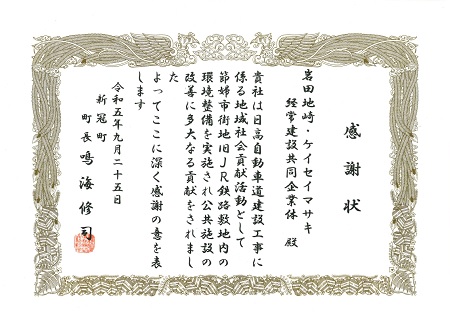 感謝状
岩田地崎・ケイセイマサキ
経常建設共同企業体 殿
貴社は日高自動車道建設工事に
係る地域社会貢献活動として
節婦市街地旧JR鉄路敷地内の
環境整備を実施され公共施設の
改善に多大なる貢献をされまし
た
よってここに深く感謝の意を表
します
令和五年九月二十五日
新冠町
町長 鳴海修司